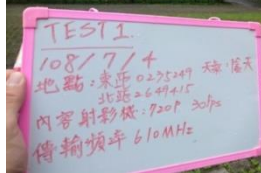 TEST 1.
108/7/4
地點:東距 0235249 天氣:陰天
北距 2649415
內容射影機:720P 30fps
傳輸頻率 610MHz